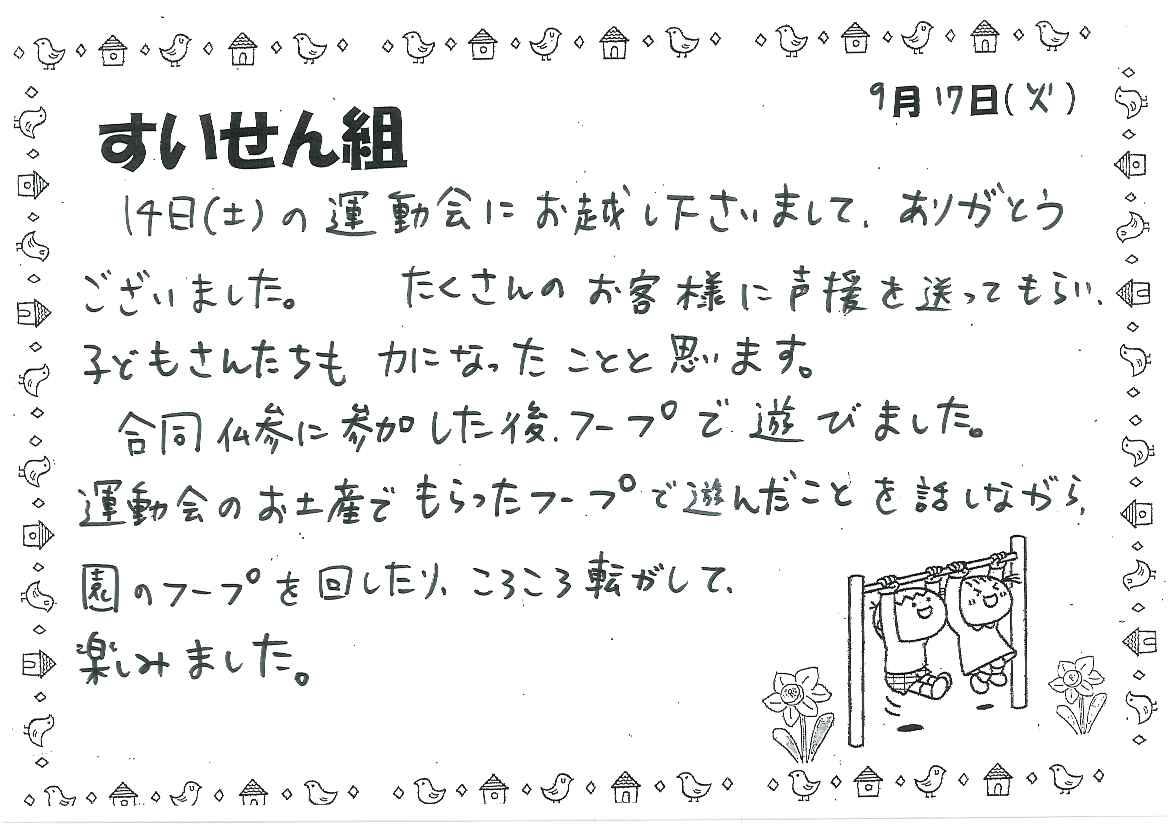 9月17日(火)
すいせん組
14日(土)の運動会にお越し下さいまして、ありがとう
ございました。 たくさんのお客様に声援を送ってもらい、
子どもさんたちも力になったことと思います。
合同仏参に参加した後、フープで遊びました。
運動会のお土産でもらったフープで遊んだことを話しながら、
園のフープを回したり、ころころ転がして、
楽しみました。